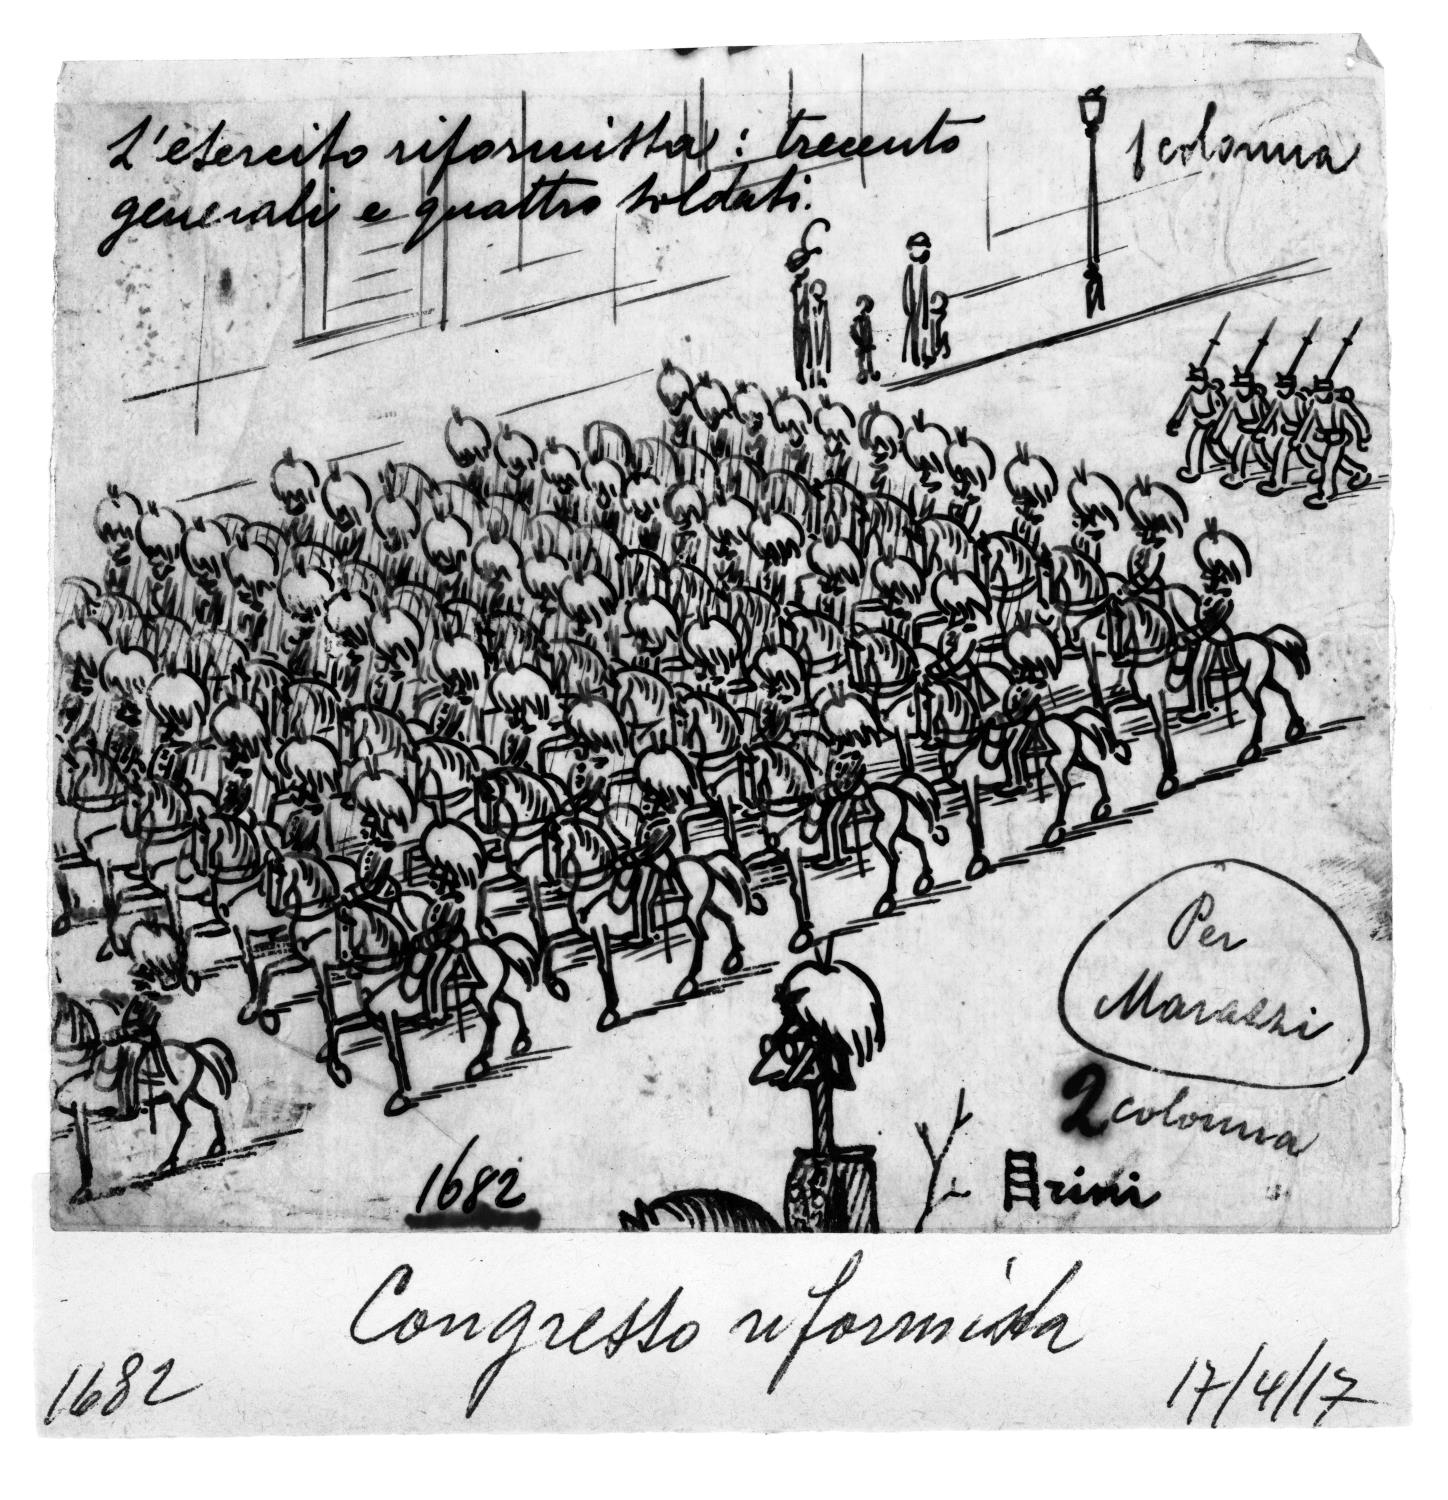 L'esercito riformista: trecento
generali e quattro soldati.
1 colonna
Per
Marazzi
2 colonna
1682
Congresso riformista
1682
17/4/17